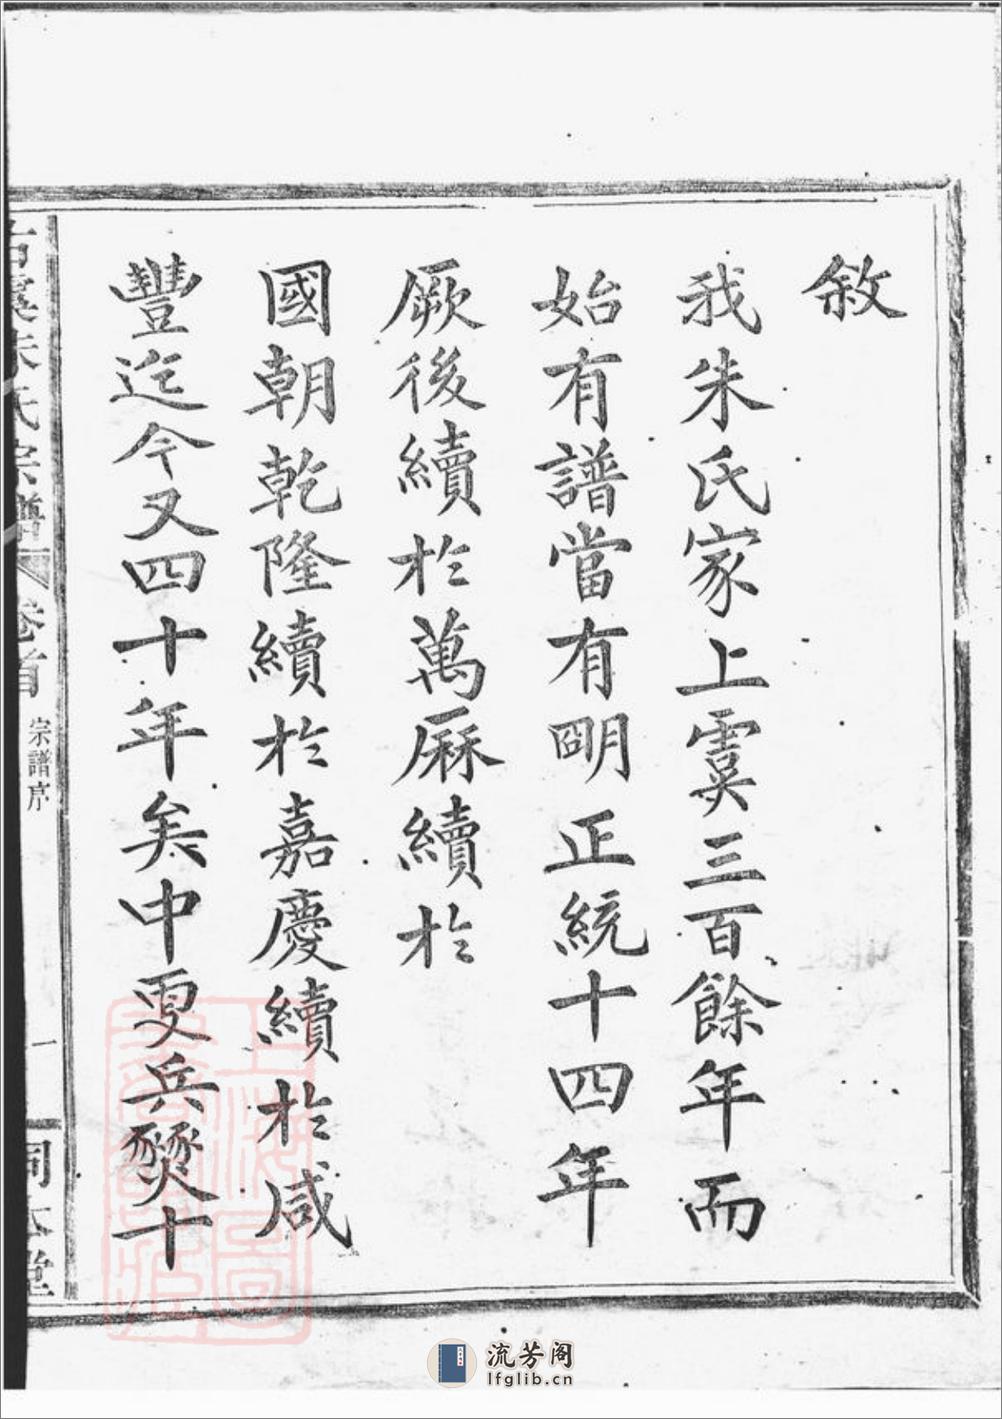 敘
我朱氏家上虞三百餘年而
始有譜當有明正統十四年
厥後續於萬厤續於
國朝乾隆續於嘉慶續於咸
豐迄今又四十年矣中更兵燹十
古虞朱氏宗譜 卷首 宗譜序 一 同本堂
上海圖書館藏
流芳阁
lfglib.cn